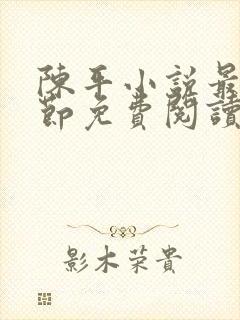 陳平小説最
節免費閱讀
影木荣貴